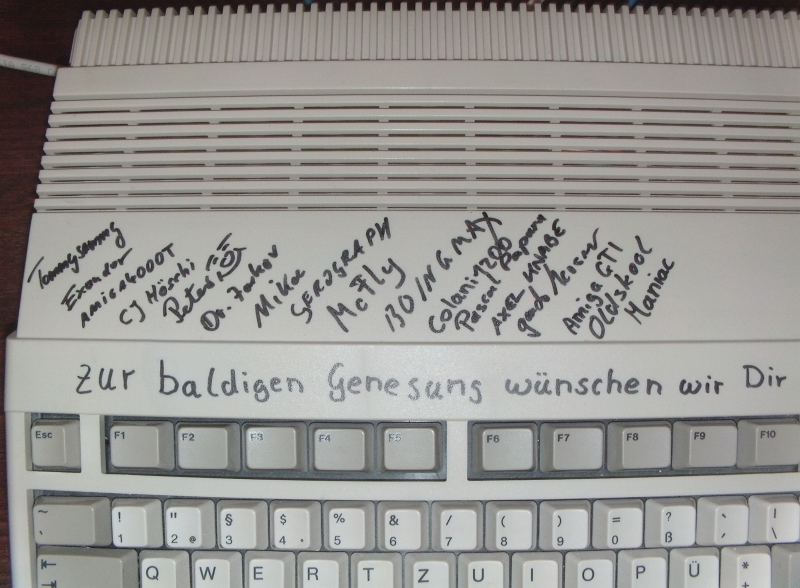 Tommysammy
Exender
AMIGA4000T
CJ Höschi
Peter
Dr. Zarkov
Mika
SEROGRAPH
McFly
BOINGMAX
Colani1200
Pascal Papara
AXEL KNABE
Amiga GTI
Oldskool
Maniac
zur baldigen Genesung wünschen wir Dir
Esc F1 F2 F3 F4 F5 F6 F7 F8 F9 F10
~ ! " § $ % & / ( ) = ? ` |
' 1 2 @ 3 4 5 6 7 8 9 0 ß ´ \
Q W E R T Z U I O P Ü *
+